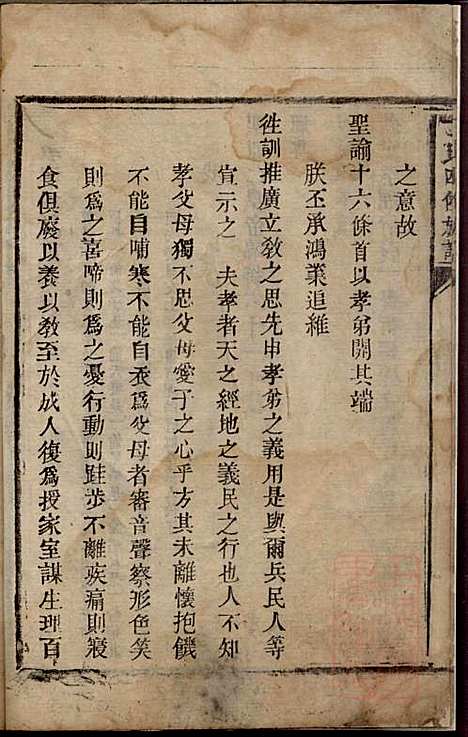 之意故
聖諭十六條首以孝弟開其端
朕丕承鴻業追維
徃訓推廣立敎之思先申孝弟之義用是與爾兵民人等
宣示之　夫孝者天之經地之義民之行也人不知
孝父母獨不思父母愛子之心乎方其未離懷抱饑
不能自哺寒不能自衣爲父母者審音聲察形色笑
則爲之喜啼則爲之憂行動則跬步不離疾痛則寢
食俱廢以養以敎至於成人復爲授家室謀生理百